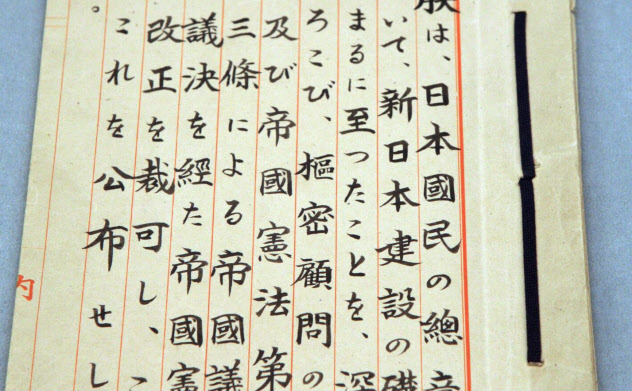 朕は、日本國民の總意
いて、新日本建設の礎
まるに至つたことを、深
ろこび、樞密顧問の
及び帝國憲法第
三條による帝國議
議決を經た帝國憲
改正を裁可し、こ
これを公布せし
。
内